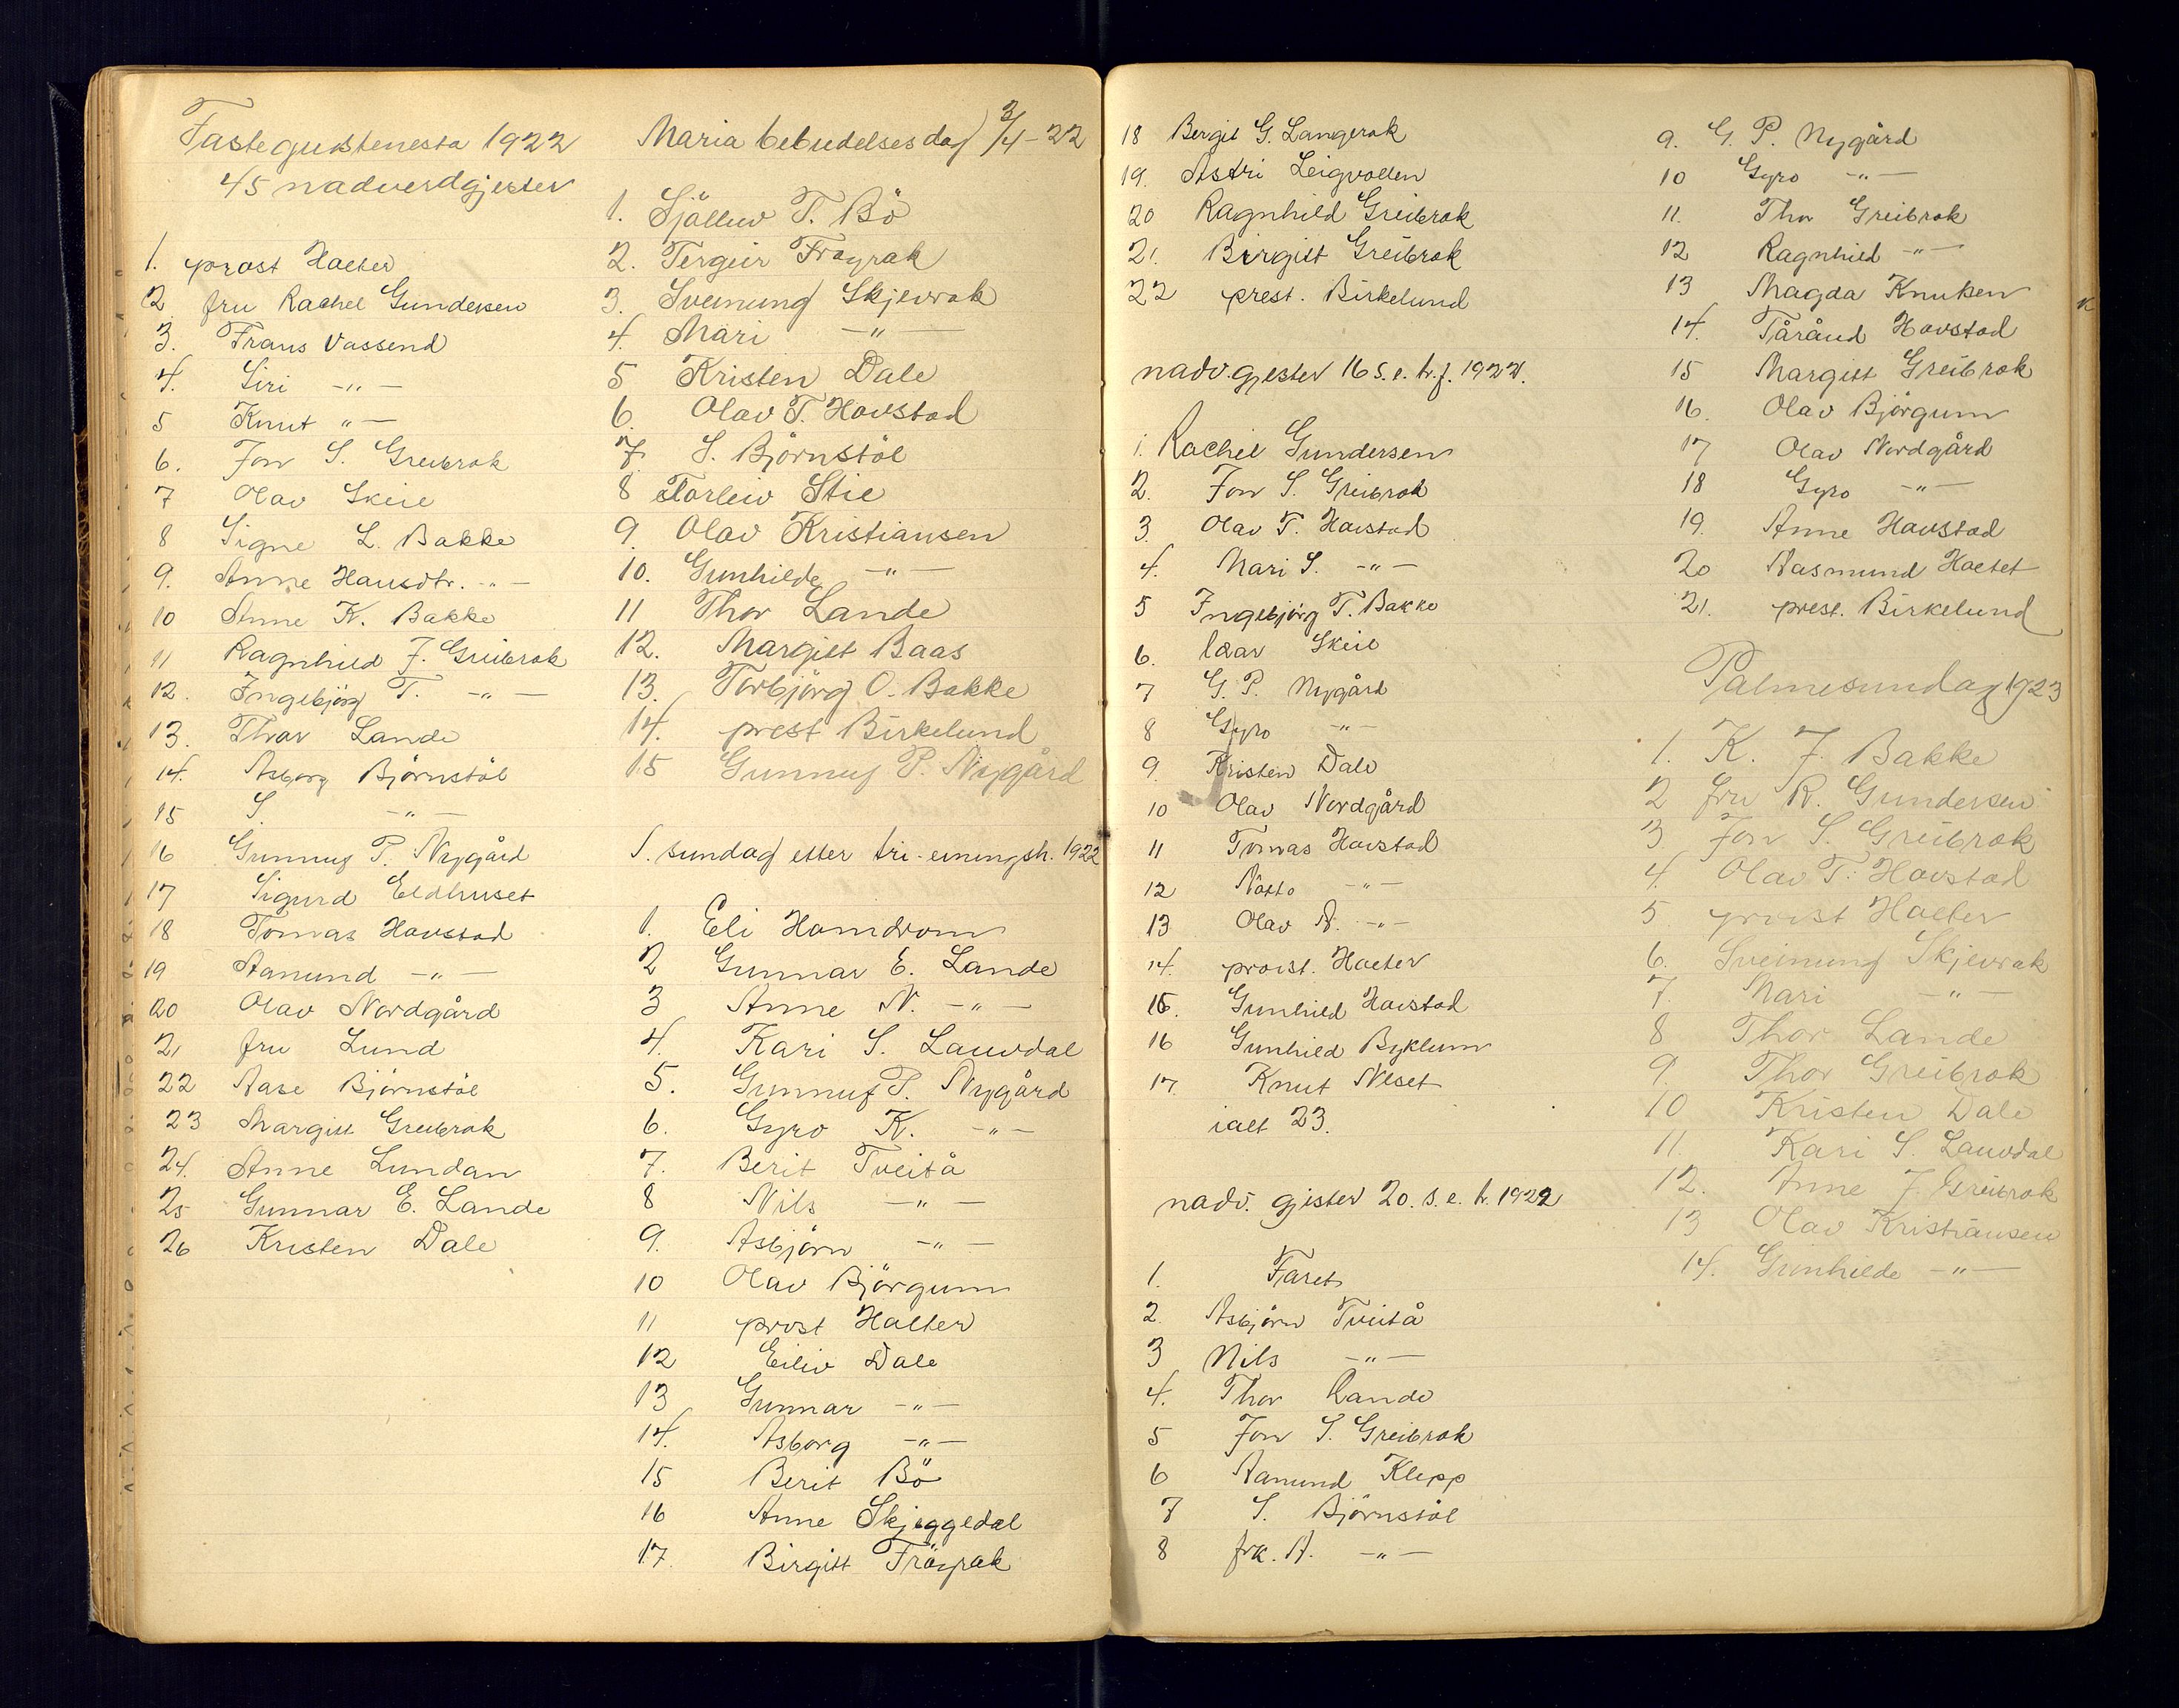 Fastegudstenesta 1922
45 nadverdgjester
1. prost Halter
2 fru Rachel Gundersen
3. Frans Vassend
4. Siri -"-
5 Knut "-
6. Jon S. Greibrok
7 Olav Skeie
8 Signe L. Bakke
9. Anne Hansdtr. -"-
10 Anne K. Bakke
11 Ragnhild J. Greibrok
12. Ingebjörg T. -"-
13. Thor Lande
14. Asborg Björnstöl
15 S. -"-
16 Gunnuf P. Nygård
17 Sigurd Eldhuset
18 Tomas Hovstad
19 Aamund -"-
20 Olav Nordgård
21 fru Lund
22 Aase Björnstöl
23 Margitt Greibrok
24. Anne Lundan
25 Gunnar E. Lande
26 Kristen Dale
Maria bebudelsesdag 2/4-22
1. Sjölluv T. Bö
2. Tergeir Fröyrak
3. Sveinung Skjevrak
4. Mari -"-
5 Kristen Dale
6. Olav T. Hovstad
7. S. Björnstöl
8 Torleiv Stie
9. Olav Kristiansen
10. Gunhilde -"-
11 Thor Lande
12. Margitt Baas
13. Torbjörg O. Bakke
14. prest Birkelund
15 Gunnuf P. Nygård
1. sundag etter tri-einingsh. 1922
1. Eli Homdrom
2 Gunnar E. Lande
3 Anne N. -"-
4. Kari S. Lauvdal
5. Gunnuf P. Nygård
6. Gyro K. -"-
7. Berit Tveitå
8 Nils -"-
9. Asbjörn -"-
10 Olav Björgum
11 prost Halter
12 Eiliv Dale
13 Gunnar -"-
14. Asborg -"-
15 Berit Bö
16 Anne Skjeggedal
17. Birgitt Fröyrak
18 Bergit G. Langerak
19. Astri Leigvollen
20 Ragnhild Greibrok
21. Birgitt Greibrok
22 prest. Birkelund
nadv.gjester 16 s.e. tr.f. 1922.
1. Rachel Gundersen
2. Jon S. Greibrok
3. Olav T. Hovstad
4. Mari S. -"-
5 Ingebjörg T. Bakke
6. Skeie
7 G. P. Nygård
8 Gyro -"-
9. Kristen Dale
10 Olav Nordgård
11 Tomas Hovstad
12 -"-
13 Olav A. -"-
14. prost. Halter
15. Gunhild Hovstad
16 Gunhild Byklum
17. Knut Neset
ialt 23.
nadv. gjester 20. s.e. tr. 1922
1. Faret
2. Asbjörn Tveitå
3 Nils -"-
4. Thor Lande
5 Jon S. Greibrok
6 Aamund Klepp
7 S. Björnstöl
8 frk. A. -"-
9. G. P. Nygård
10 Gyro -"-
11. Thor Greibrok
12 Ragnhild -"-
13 Magda Knutsen
14. Tårånd Hovstad
15 Margitt Greibrok
16. Olav Björgum
17 Olav Nordgård
18 Gyro -"-
19. Anne Hovstad
20 Aasmund Hoslet
21. prest. Birkelund
Palmesundag 1923
1. K. J. Bakke
2 fru R. Gundersen
3 Jon S. Greibrok
4. Olav T. Hovstad
5 prost Halter
6. Sveinung Skjevrak
7. Mari -"-
8 Thor Lande
9. Thor Greibrok
10 Kristen Dale
11. Kari S. Lauvdal
12. Anne J. Greibrok
13 Olav Kristiansen
14. Gunhilde -"-